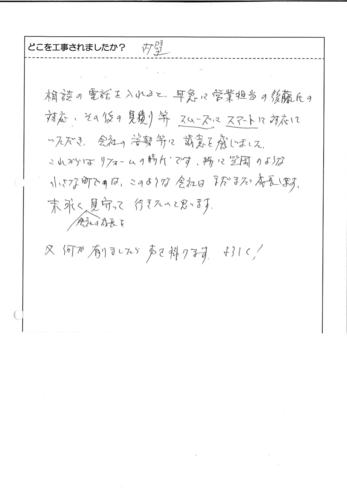 どこを工事されましたか？ 外壁
相談の電話を入れると、早急に営業担当の後藤氏の
対応、その後の見積り等 スムーズに スマートに対応して
いただき、会社の姿勢等に 誠意を感じました。
これからはリフォームの時代です。特に笠岡のような
小さな町では、このような会社は まだまだ 成長します。
末永く 見守って 行きたいと思います。
会社の成長を
又 何か 有りましたら 声を掛けます。よろしく！